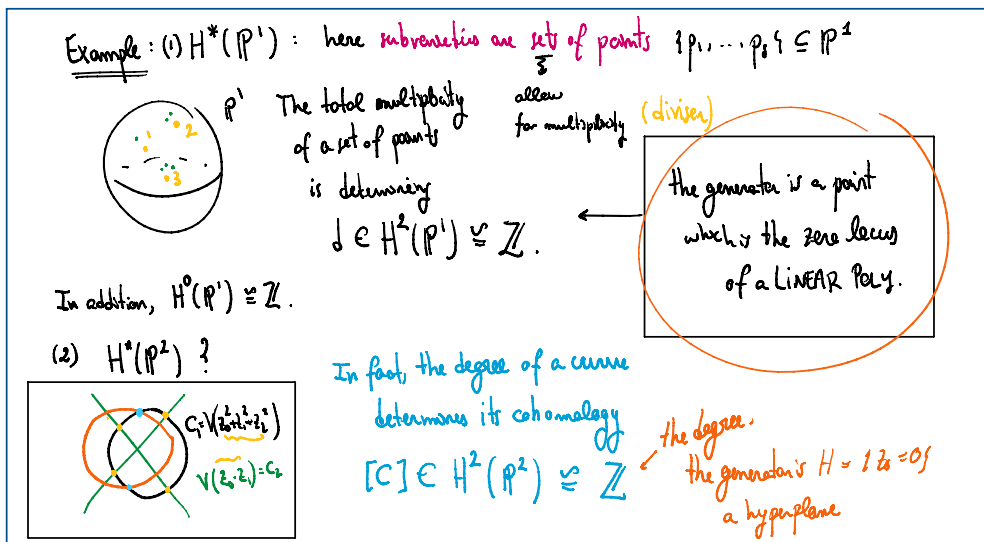 Example : (1) H*(P¹) : here subvarieties are sets of points {p₁, ... p₈} ⊆ P¹
allow
for multiplicity
(divisor)
P¹
1
2
3
The total multiplicity
of a set of points
is determining
d ∈ H²(P¹) ≅ Z.
the generator is a point
which is the zero locus
of a LINEAR POLY.
In addition, H⁰(P¹) ≅ Z.
(2) H*(P²) ?
C₁=V(z₀²+z₁²-z₂²)
V(z₀·z₁)=C₂
In fact, the degree of a curve
determines its cohomology
[C] ∈ H²(P²) ≅ Z
the degree.
the generator is H = {z₀=0}
a hyperplane